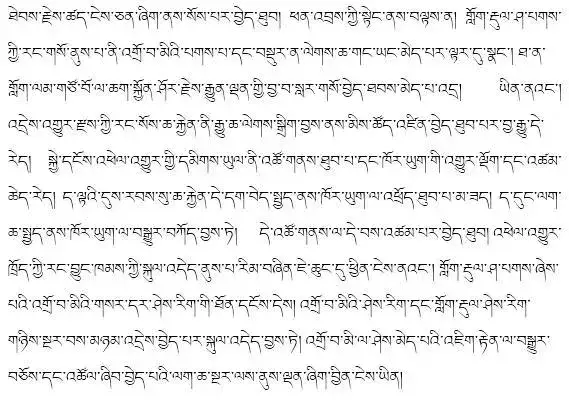 ཐེབས་རྗེས་ཚད་ངེས་ཅན་ཞིག་ནས་སོས་པར་བྱེད་ཐུབ། ཕན་འབྲས་ཀྱི་སྟེང་ནས་བལྟས་ན། གློག་རྡུལ་ཤ་པགས་
ཀྱི་རང་གསོ་ནུས་པ་ནི་འགྲོ་བ་མིའི་པགས་པ་དང་བསྡུར་ན་ལེགས་ཆ་གང་ཡང་མེད་པར་ལྟར་དུ་སྣང་། ཐ་ན་
གློག་ལམ་གཙོ་བོ་ལ་ཆག་སྐྱོན་ཤོར་རྗེས་རྒྱུན་ལྡན་གྱི་བྱ་བ་སླར་གསོ་བྱེད་ཐབས་མེད་པ་འདྲ། ཡིན་ནའང་།
འདྲེས་འགྱུར་རྫས་ཀྱི་རང་སོས་ཆ་རྐྱེན་ནི་རྒྱུ་ཆ་ལེགས་སྒྲིག་བྱས་ནས་མིས་ཚོད་འཛིན་བྱེད་ཐུབ་པར་བྱ་རྒྱུ་དེ་
རེད། སྐྱེ་དངོས་འཕེལ་འགྱུར་གྱི་དམིགས་ཡུལ་ནི་འཚོ་གནས་ཐུབ་པ་དང་ཁོར་ཡུག་གི་འགྱུར་ལྡོག་དང་འཚམ་
ཆེད་རེད། ད་ལྟའི་དུས་རབས་སུ་ཆ་རྐྱེན་དེ་དག་བེད་སྤྱད་ནས་ཁོར་ཡུག་ལ་འཕྲོད་ཐུབ་པ་མ་ཟད། ད་དུང་ལག་
ཆ་སྤྱད་ནས་ཁོར་ཡུག་ལ་བསྒྱུར་བཀོད་བྱས་ཏེ། དེ་འཚོ་གནས་ལ་དེ་བས་འཚམ་པར་བྱེད་ཐུབ། འཕེལ་འགྱུར་
ཁྲོད་ཀྱི་རང་བྱུང་ཁམས་ཀྱི་སྐུལ་འདེད་ནུས་པ་རིམ་བཞིན་ཇེ་ཆུང་དུ་ཕྱིན་ངེས་ནའང་། གློག་རྡུལ་ཤ་པགས་ཞེས་
པའི་འགྲོ་བ་མིའི་གསར་དར་ཤེས་རིག་གི་ཐོན་དངོས་དེས། འགྲོ་བ་མིའི་ཤེས་རིག་དང་གློག་རྡུལ་ཤེས་རིག་
གཉིས་སྔར་བས་མཉམ་འདྲེས་བྱེད་པར་སྐུལ་འདེད་བྱས་ཏེ། འགྲོ་བ་མི་ལ་ཤེས་མེད་པའི་འཇིག་རྟེན་ལ་བསྒྱུར་
བཅོས་དང་འཚོལ་ཞིབ་བྱེད་པའི་ལག་ཆ་སྔར་ལས་ནུས་ལྡན་ཞིག་བྱིན་ངེས་ཡིན།